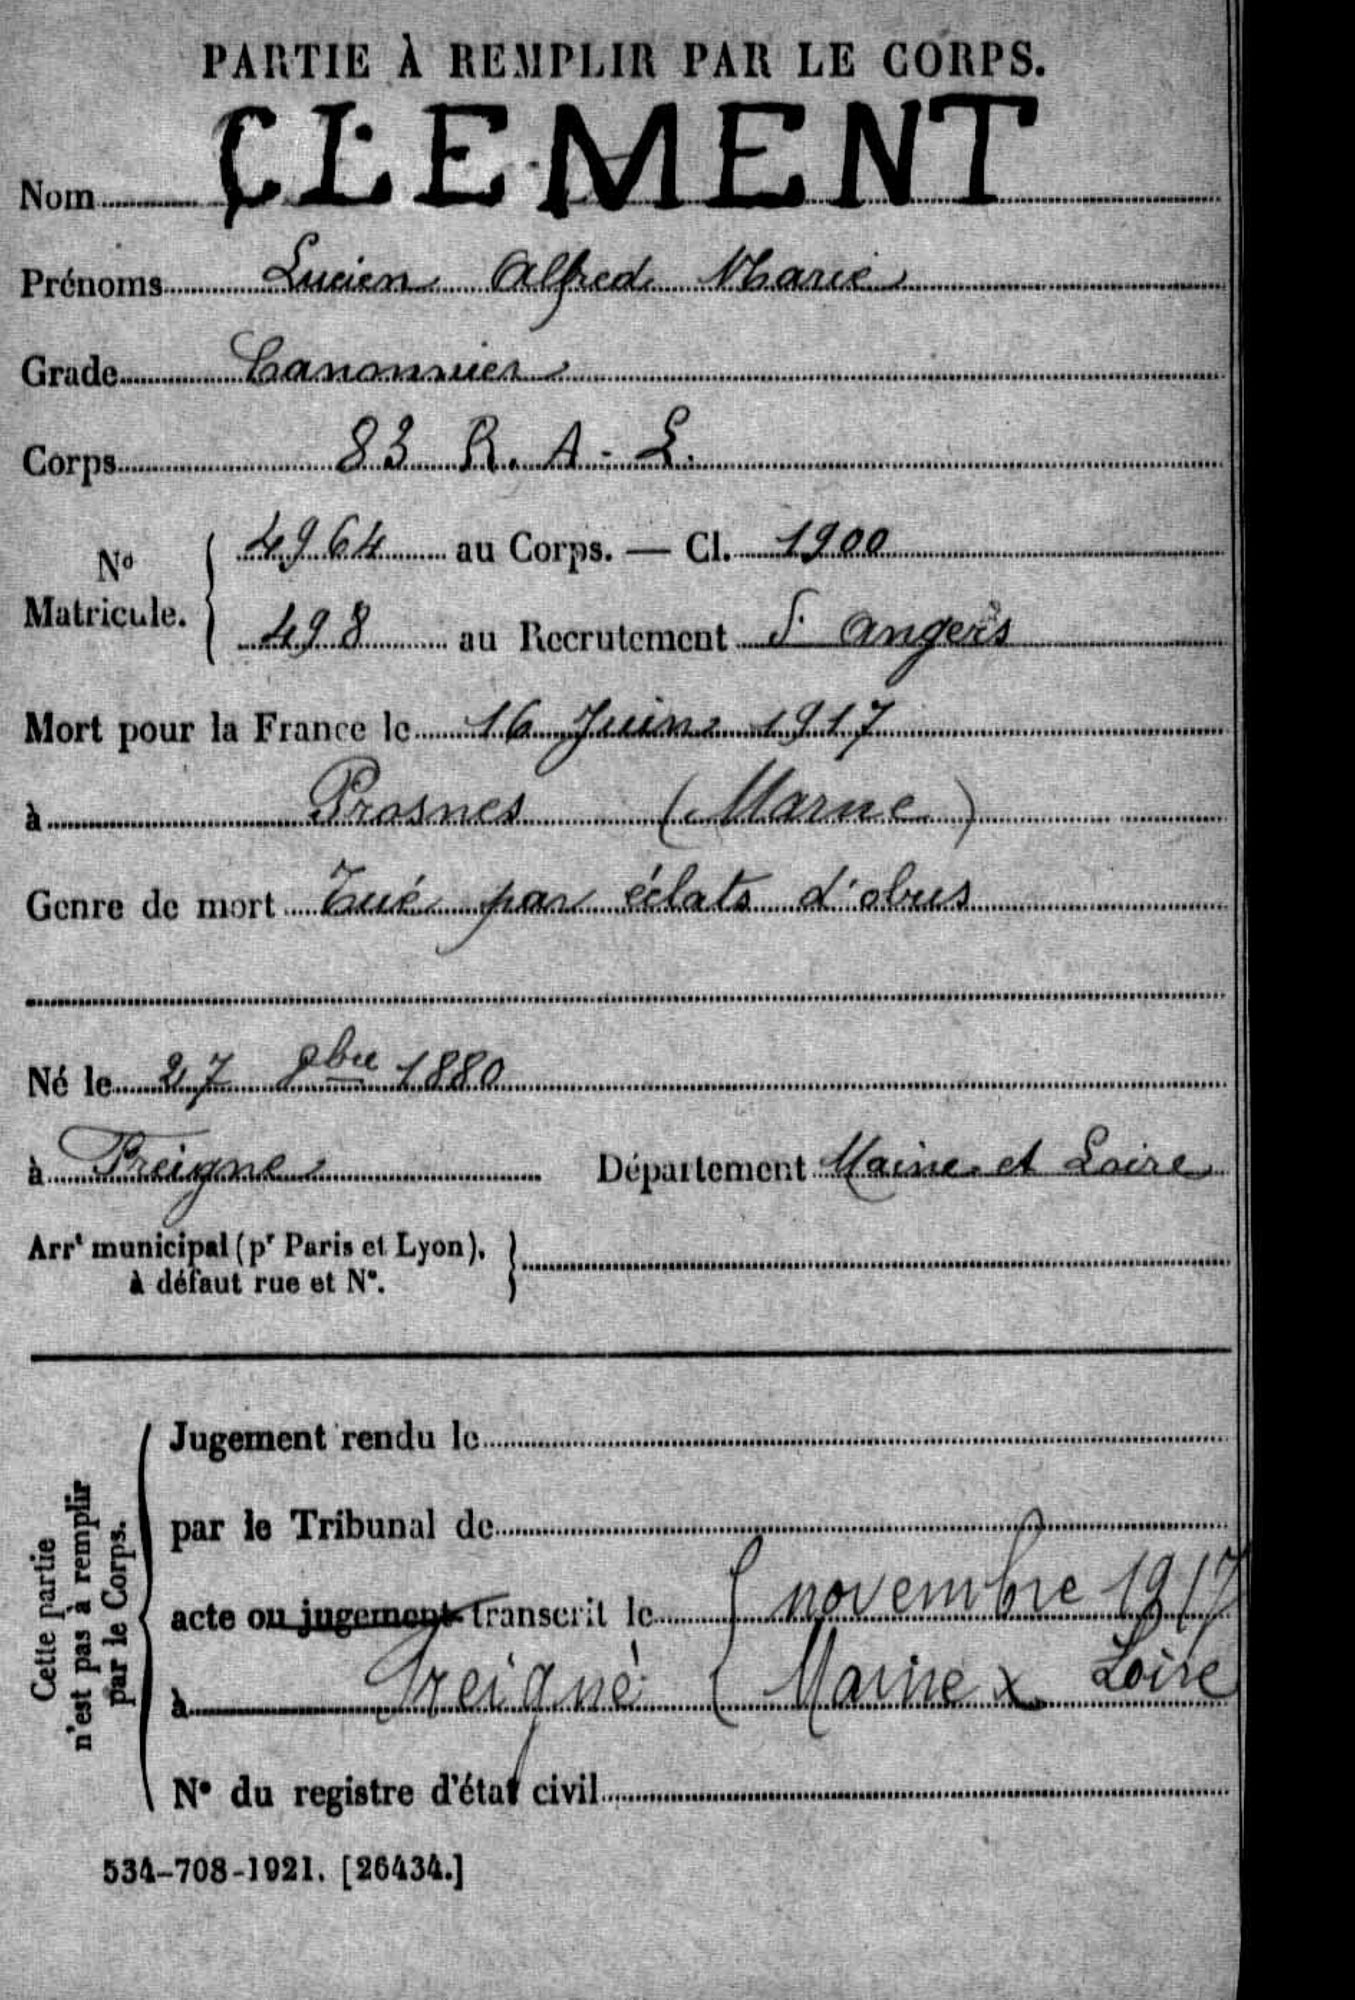 PARTIE À REMPLIR PAR LE CORPS.
Nom CLEMENT
Prénoms Lucien Alfred Marie
Grade Canonnier
Corps 83 R. A. L.
N° Matricule. 4964 au Corps. — Cl. 1900
498 au Recrutement S. Angers
Mort pour la France le 16 Juin 1917
à Prosnes (Marne)
Genre de mort Tué par éclats d'obus
Né le 27 9bre 1880
à Freigne Département Maine et Loire
Arrt municipal (pr Paris et Lyon), à défaut rue et N°.
Cette partie n'est pas à remplir par le Corps.
Jugement rendu le
par le Tribunal de
acte ou jugement transcrit le novembre 1917
à Freigné (Maine & Loire
N° du registre d'état civil
534-708-1921. [26434.]